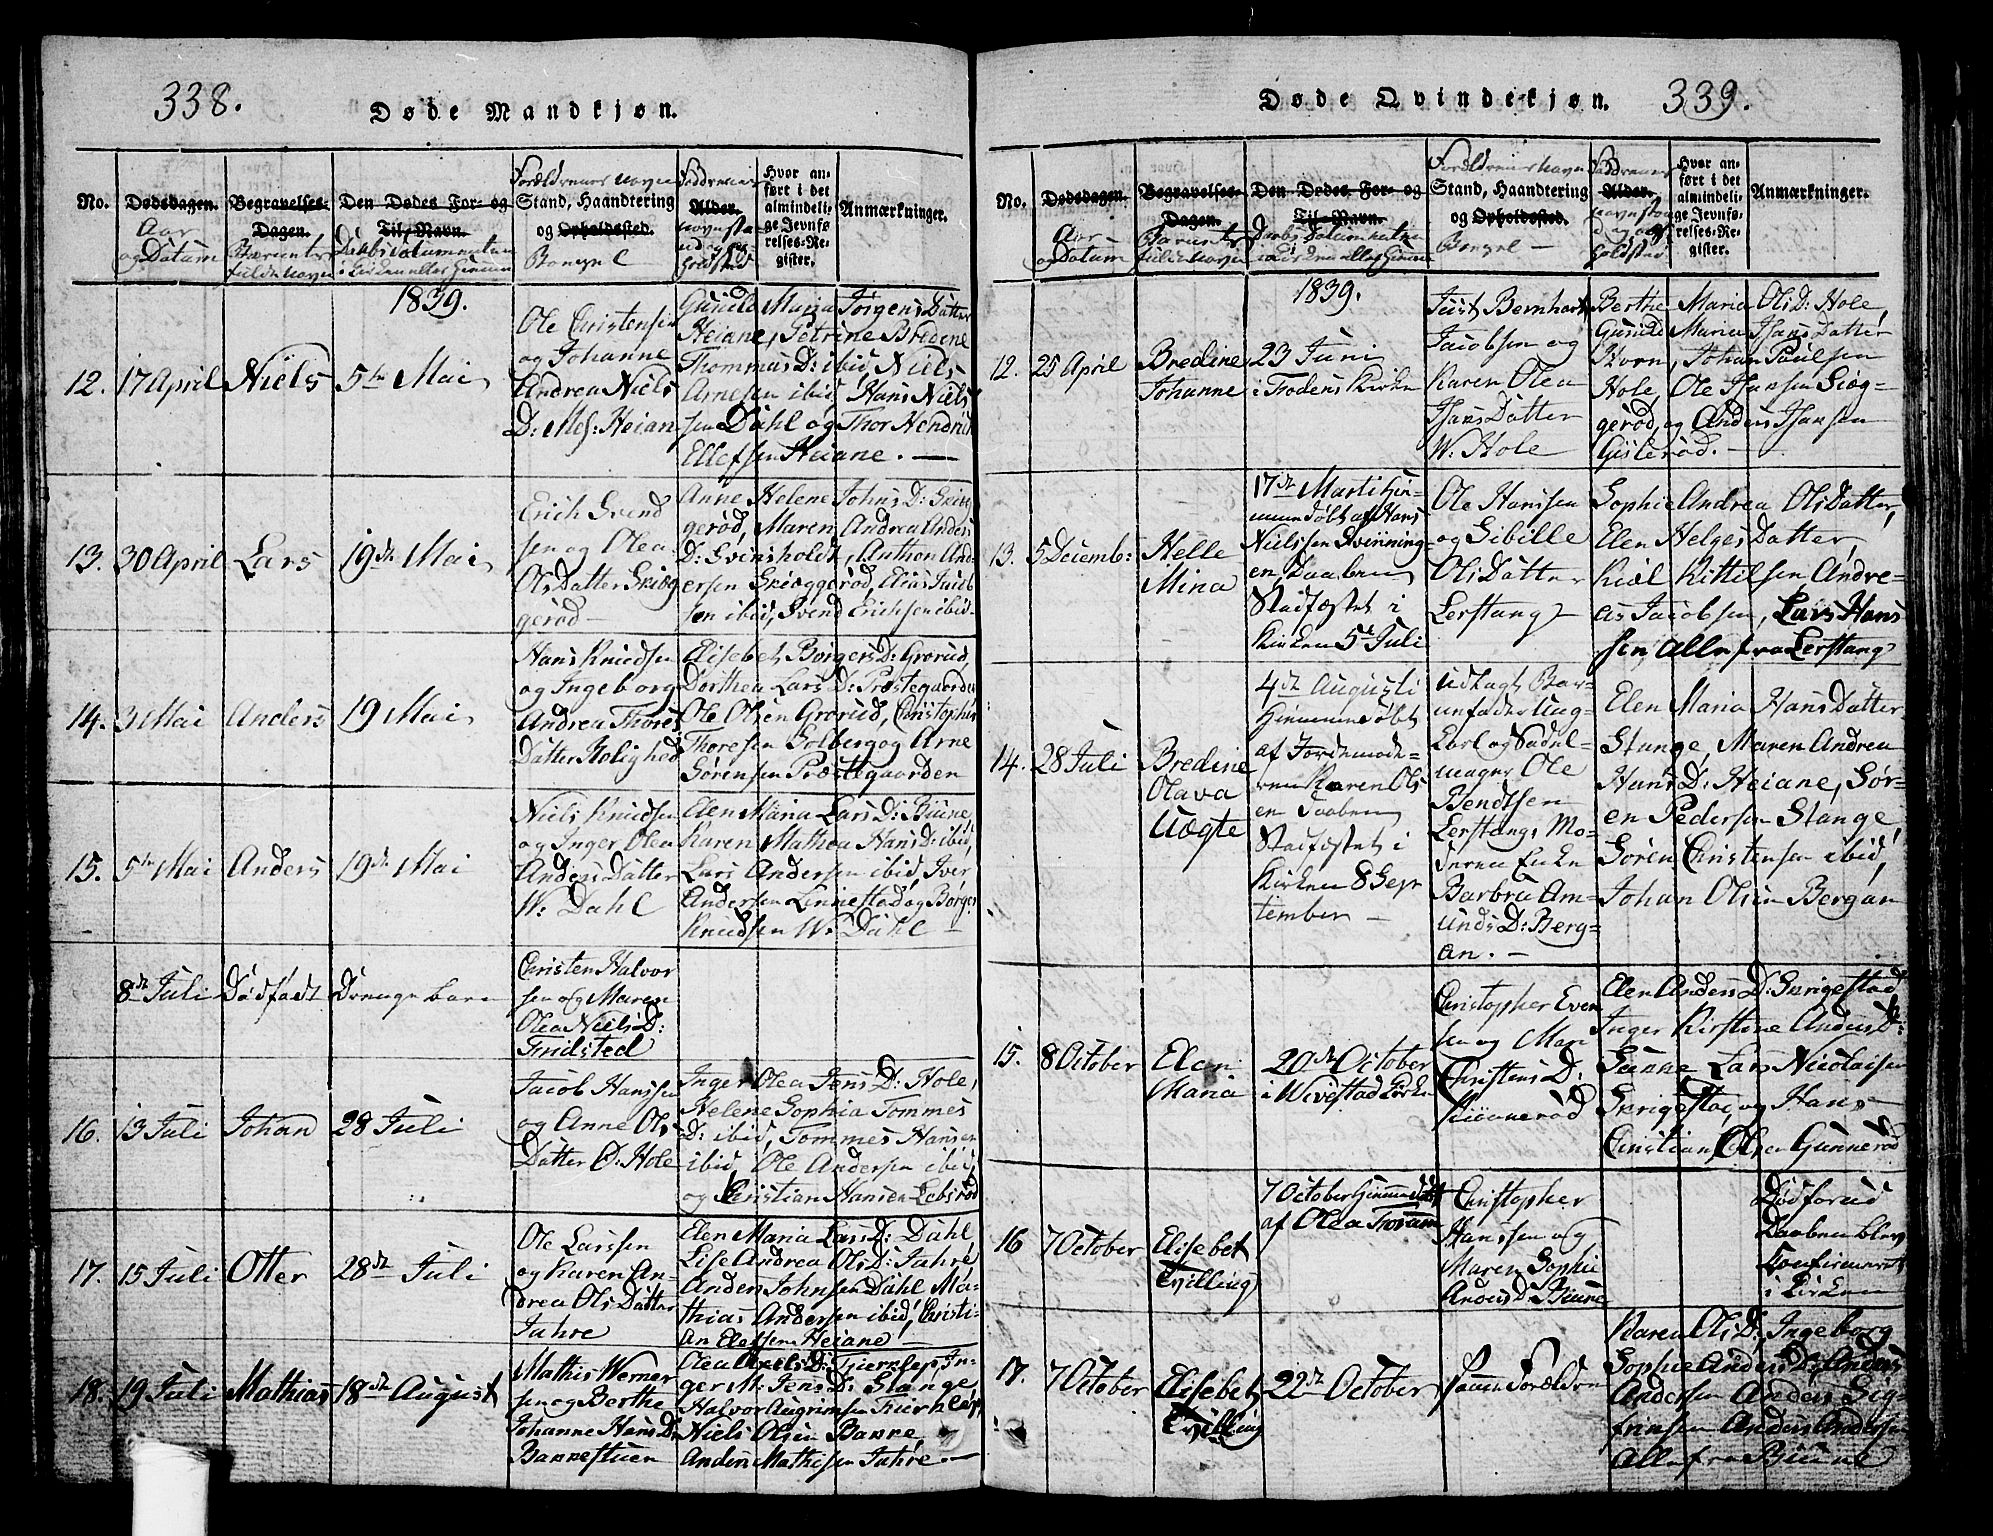 338.
Døde Mandkjøn.
No.
Dødsdagen.
Aar
og Datum
Begravelses-
Dagen.
Barnets
fulde Navn
Den Dødes For- og
Til-Navn.
Daabs datum enten
i Kirken eller Hiemme
Forældrenes Navn
Stand, Haandtering
og Opholdssted.
Bopæl
Faddrenes
Alder.
Navn Sta-
nd og Op-
holdsted
Hvor an-
ført i det
almindeli-
ge Jevnfø-
relses-Re-
gister.
Anmærkninger.
1839.
12. 17 April Niels 5te Mai
Ole Christensen
og Johanne
Andrea Niels
D: Ms: Heian
Gunild Maria Jørgens Datter
Heiane, Petrine Bredine
Thommas D: ibid, Niels
Arnesen ibid, Hans Niels
sen Dahl og Thor Hendrik
Ellefsen Heiane. —
13. 30 April Lars 19de Mai
Erich Svend
sen og Olea
Ols Datter Skiøg
gerød —
Anne Helene Johns D: Skiøg
gerød, Maren Andrea Anders
D: Svinsholdt, Anthon And
ersen Skiæggerød, Elias Jacob
sen ibid, Svend Erichsen ibid.
14. 3 Mai Anders 19 Mai
Hans Knudsen
og Ingeborg
Andrea Thores
Datter Rolighed
Elisebet Børgers D: Grorud,
Dorthea Lars D: Præstegaarden
Ole Olsen Grorud, Christopher
Thoresen Solberg og Arne
Sørensen Præstegaarden
15. 5te Mai Anders 19de Mai
Niels Knudsen
og Inger Olea
Anders Datter
W: Dahl
Elen Maria Lars D: Buune,
Karen Mathea Hans D: ibid,
Lars Andersen ibid, Iver
Andersen Linnestad og Børger
Knudsen W: Dahl
8de Juli Dødfødt Drenge barn
Christen Halvor
sen og Maren
Olea Niels D:
Trulsted
16. 13 Juli Johan 28 Juli
Jacob Hanssen
og Anne Ols
Datter Ø: Hole
Inger Olea Jens D: Hole,
Helene Sophia Tommes
D: ibid, Tommes Hansen
ibid, Ole Andersen ibid
og Christian Hansen Lebsrød
17. 15 Juli Otter 28de Juli
Ole Larssen
og Karen An-
drea Ols Datter
Jahre
Elen Maria Lars D: Dahl
Lise Andrea Ols D: Jahre
Anders Johnsen Dahl Ma-
thias Andersen ibid, Christi-
an Elefsen Heiane —
18. 19 Juli Mathias 18de August
Mathis Werner
sen og Berthe
Johanne Hans D:
Bakkestuen
Olea Axels D: Kiernsep, In-
ger M: Jens D: Stange,
Halvor Angrimsen
Niels Olsen Bakke
Anders Mathisen Jahre. —
Døde Qvindekjøn. 339.
No.
Dødsdagen.
Aar
og Datum
Begravelses-
Dagen.
Barnets
fulde Navn
Den Dødes For- og
Til-Navn.
Daabs Datum enten
i Kirken eller Hiemme
Forældrenes Navn
Stand, Haandtering
og Opholdssted.
Bopæl —
Faddrenes
Alder.
Navn Sta
nd og Op
holdsted
Hvor an-
ført i det
almindeli-
ge Jevnfø-
relses-Re-
gister.
Anmærkninger.
1839.
12. 25 April Bredine
Johanne
23 Juni
i Frodens Kirke
Just Bernhart
Jacobsen og
Karen Olea
Hans Datter
W: Hole
Berthe Maria Ols D: Hole,
Gunild Maria Hans Datter
Horn, Johan Paulsen
Hole, Ole Hansen Siøg-
gerød, og Anders Hansen
Gislerød. —
13. 5 Decemb: Helle
Mina
17de Marti Hie-
mmedøbt af Hans
Nielssen Kvenning-
en, Daaben
Stadfæstet i
Kirken 5te Juli
Ole Hanssen
og Sibille
Ols Datter
Lerstang
Sophie Andrea Ols Datter,
Elen Helges Datter
Kiøl Kittilsen, Andre-
as Jacobsen, Lars Hans
sen Alle fra Lerstang
14. 28 Juli Bredine
Olava
Uægte
4de Augusti
Hiemmedøbt
af Jordemode-
ren Karen Ols
en Daaben
Stadfæstet i
Kirken 8 Sep
tember —
Udlagt Bar-
nefader Ung-
karl og Sadel-
mager Ole
Bendtsen
Lerstang, Mo-
deren Enke
Barbru Am-
unds D: Berg-
an. —
Elen Maria Hans Datter
Stange, Maren Andrea
Hans D: Heiane, Sør-
en Pedersen Stange
Søren Christensen ibid,
Johan Olsen Bergan
15. 8 October Elen
Maria
20de October
i Wivestad Kirke
Christopher Even
sen og Mari
Christens D:
Elen Anders D: Skrigestad
Inger Kirstine Anders D:
Lars Nicolaisen
Skrigestad, og Hans
Christian Olsen Gunnerød
16 7 October Elisebet
Tvilling
7 October Hiemmedøbt
af Olea
Christopher
Hanssen og
Maren Sophie
Anders D: Buune
Død forud
Daaben blev
Konfirmeret
i Kirken
17. 7 October Elisebet
Tvilling
22de October
Samme Forældre
Karen Ols D: Ingeborg
Sophie Anders D: Anders
Andersen Anders Sig-
frinsen Anders Andersen
Alle fra Buune